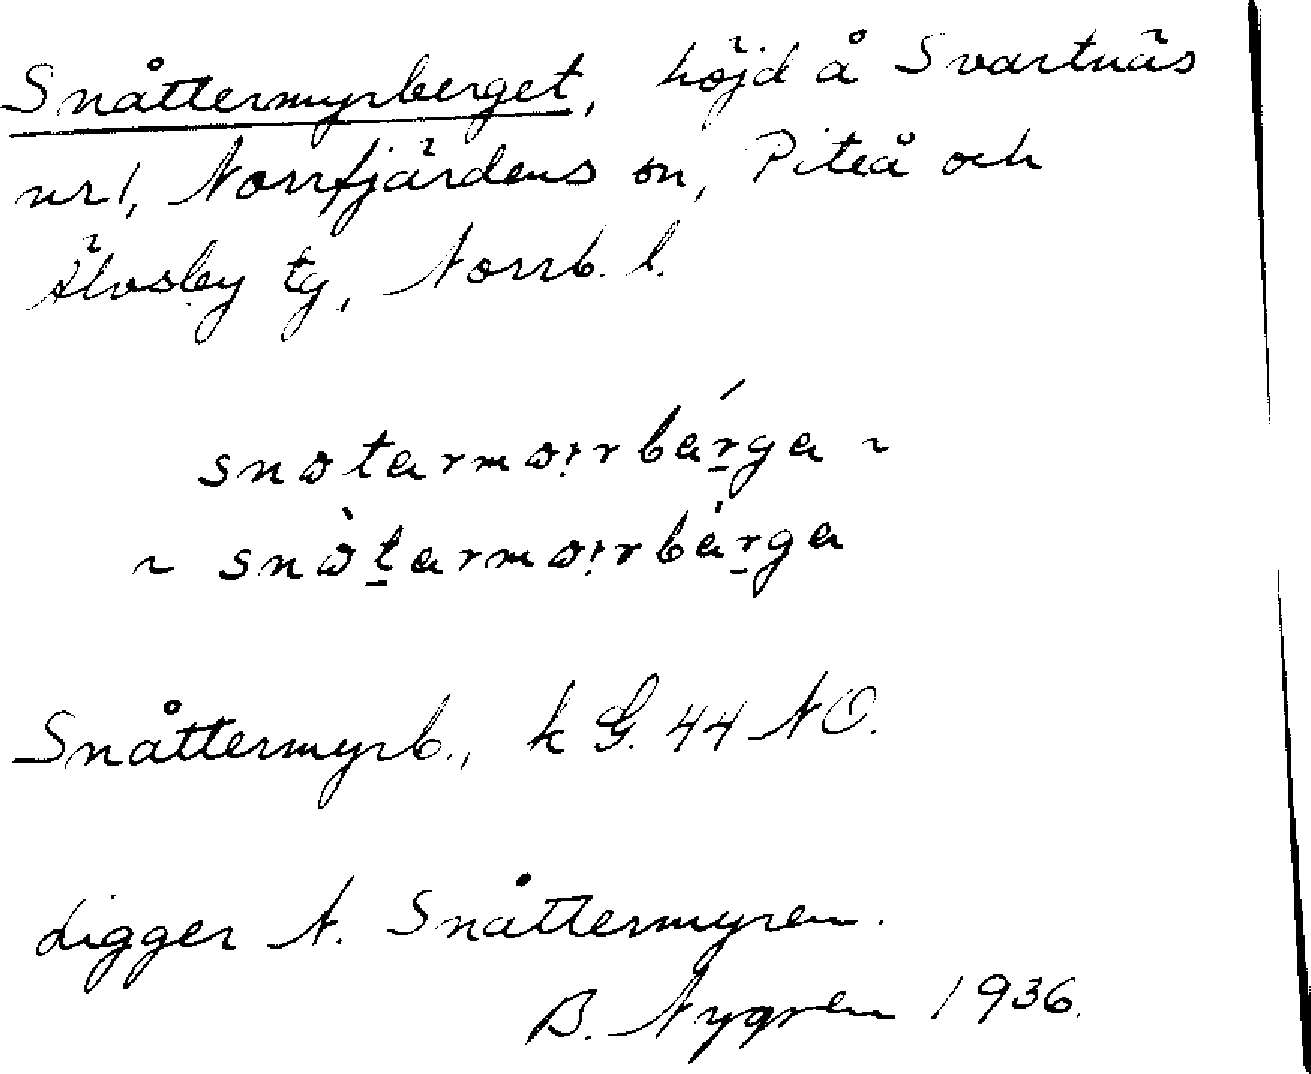 Snåttermyrberget, höjd å Svartnäs
nr 1, Norrfjärdens sn, Piteå och
Älvsby tg, Norrb. l.
snɷtarmɷ:rbárga ~
~ snɷ̀tarmɷ:rbárga
Snåttermyrb., k G. 44 NO.
Ligger N. Snåttermyren.
B. Nygren 1936.